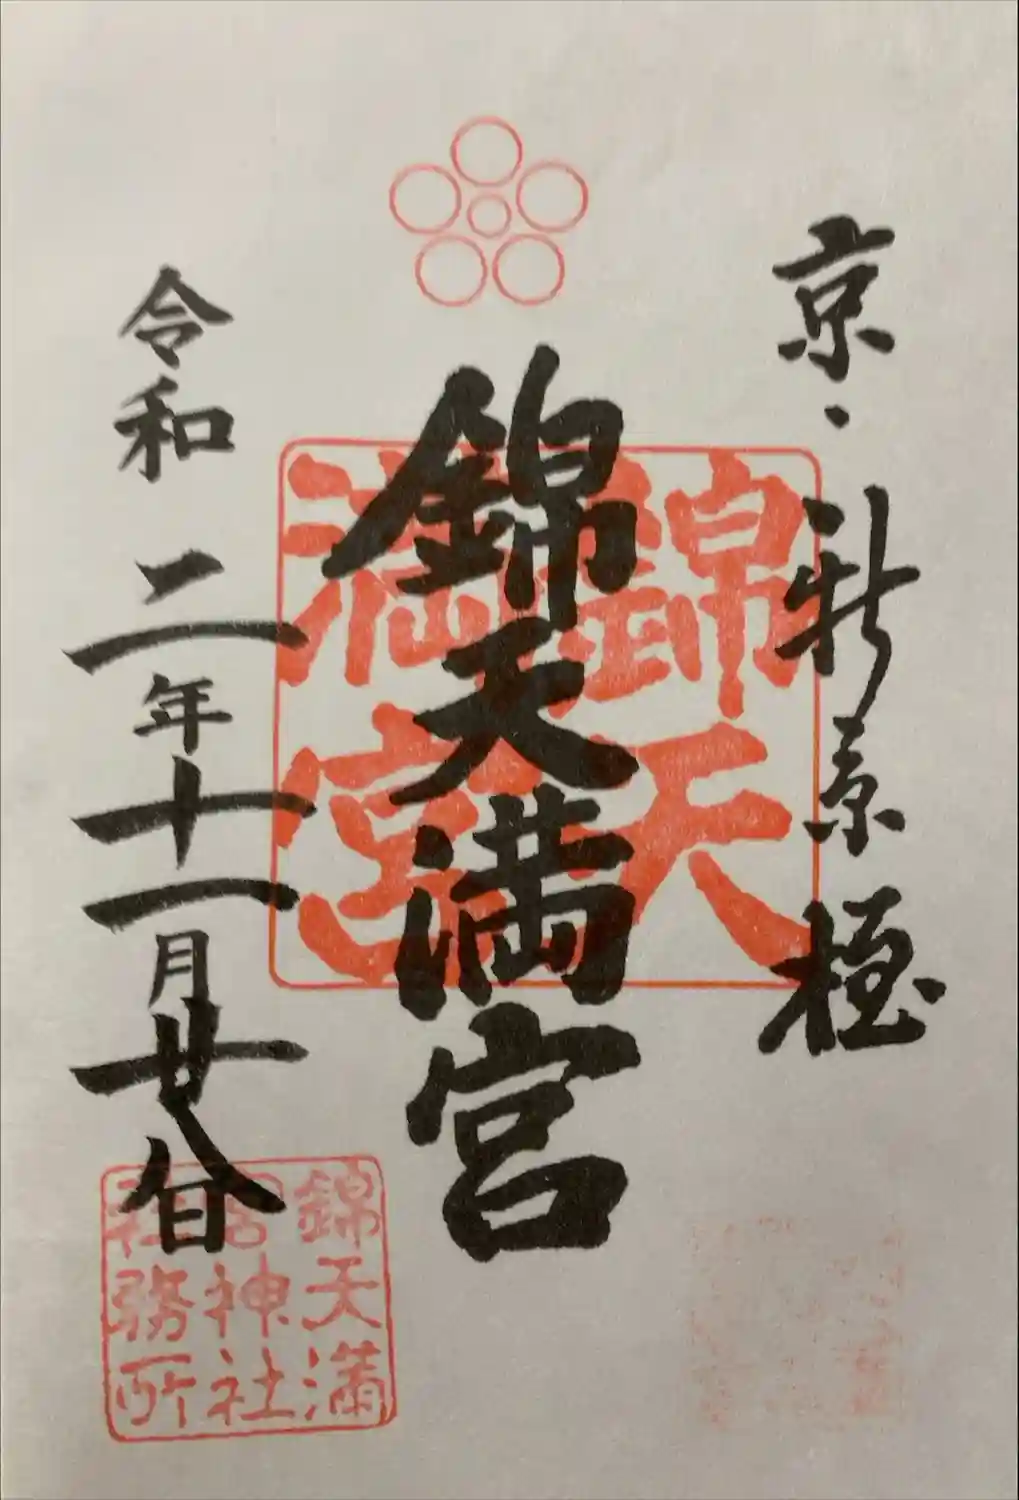 京・新京極
錦天満宮
令和二年十一月廿八日
錦天
満宮
錦天満
宮神社
社務所